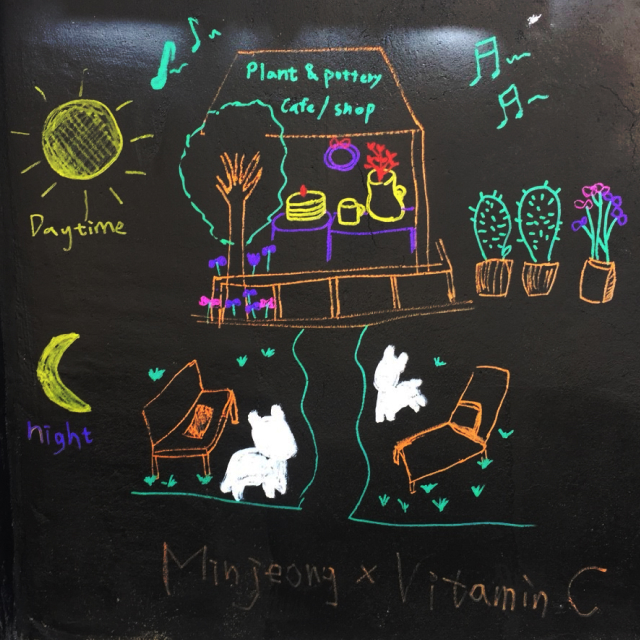 Plant & pottery
Cafe / shop
Daytime
night
Minjeong x Vitamin.C